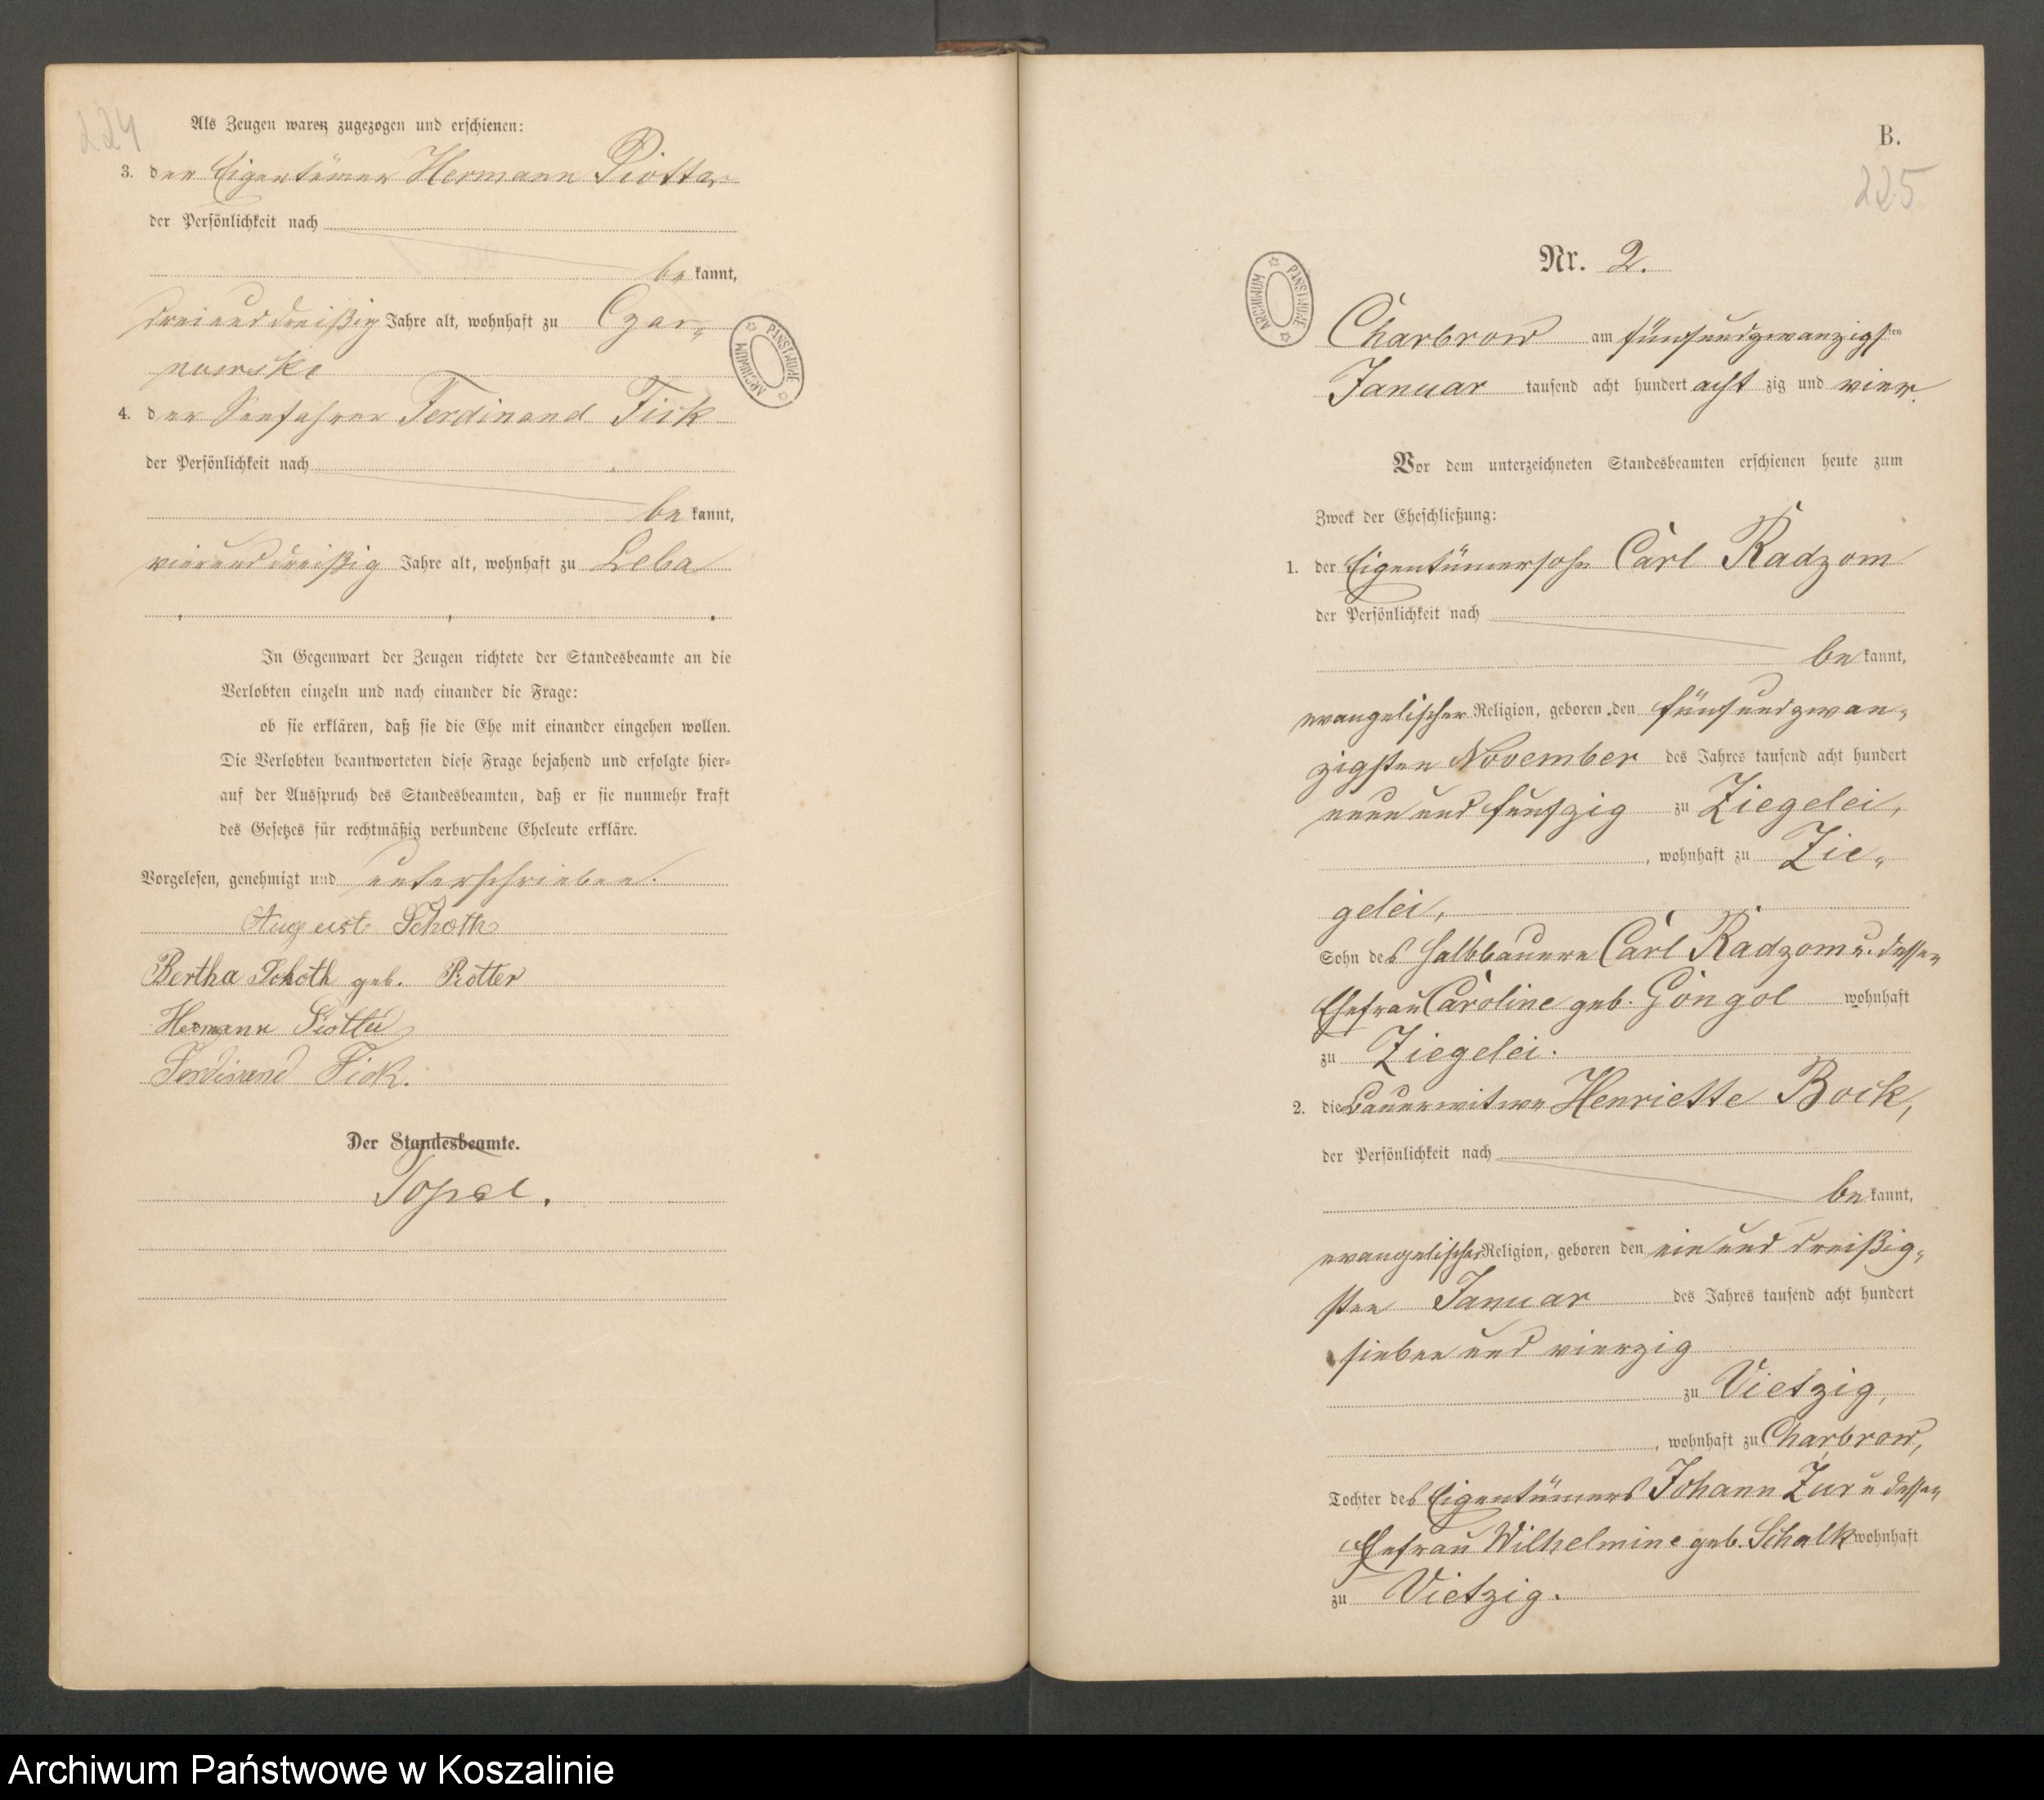 224
Als Zeugen waren zugezogen und erschienen:
3. der Eigentümer Hermann Piotter
der Persönlichkeit nach
be kannt,
dreiunddreißig Jahre alt, wohnhaft zu Czar„
nowske
4. der Seefahrer Ferdinand Fick
der Persönlichkeit nach
be kannt,
vierunddreißig Jahre alt, wohnhaft zu Leba
In Gegenwart der Zeugen richtete der Standesbeamte an die
Verlobten einzeln und nach einander die Frage:
ob sie erklären, daß sie die Ehe mit einander eingehen wollen.
Die Verlobten beantworteten diese Frage bejahend und erfolgte hier=
auf der Ausspruch des Standesbeamten, daß er sie nunmehr kraft
des Gesetzes für rechtmäßig verbundene Eheleute erkläre.
Vorgelesen, genehmigt und unterschrieben.
August Schoth
Bertha Schoth geb. Piotter
Hermann
Ferdinand Fick.
Der Standesbeamte.
B.
225
Nr. 2.
ARCHIWUM PAŃSTWOWE
Charbrow am fünfundzwanzigsten
Januar tausend acht hundert acht zig und vier.
Vor dem unterzeichneten Standesbeamten erschienen heute zum
Zweck der Eheschließung:
1. der Eigentümersohn Carl Radzom
der Persönlichkeit nach
be kannt,
evangelischer Religion, geboren den fünfundzwan„
zigsten November des Jahres tausend acht hundert
neun und fünfzig zu Ziegelei,
, wohnhaft zu Zie„
gelei,
Sohn des Halbbauern Carl Radzom u. dessen
Ehefrau Caroline geb. Gongol wohnhaft
zu Ziegelei.
2. die Bauerwitwe Henriette Bock,
der Persönlichkeit nach
be kannt,
evangelischer Religion, geboren den ein und dreißig„
sten Januar des Jahres tausend acht hundert
sieben und vierzig
zu Vietzig,
, wohnhaft zu Charbrow,
Tochter des Eigentümers Johann Zur u dessen
Ehefrau Wilhelmine geb. Schalk wohnhaft
zu Vietzig.
ARCHIWUM PAŃSTWOWE
Archiwum Państwowe w Koszalinie